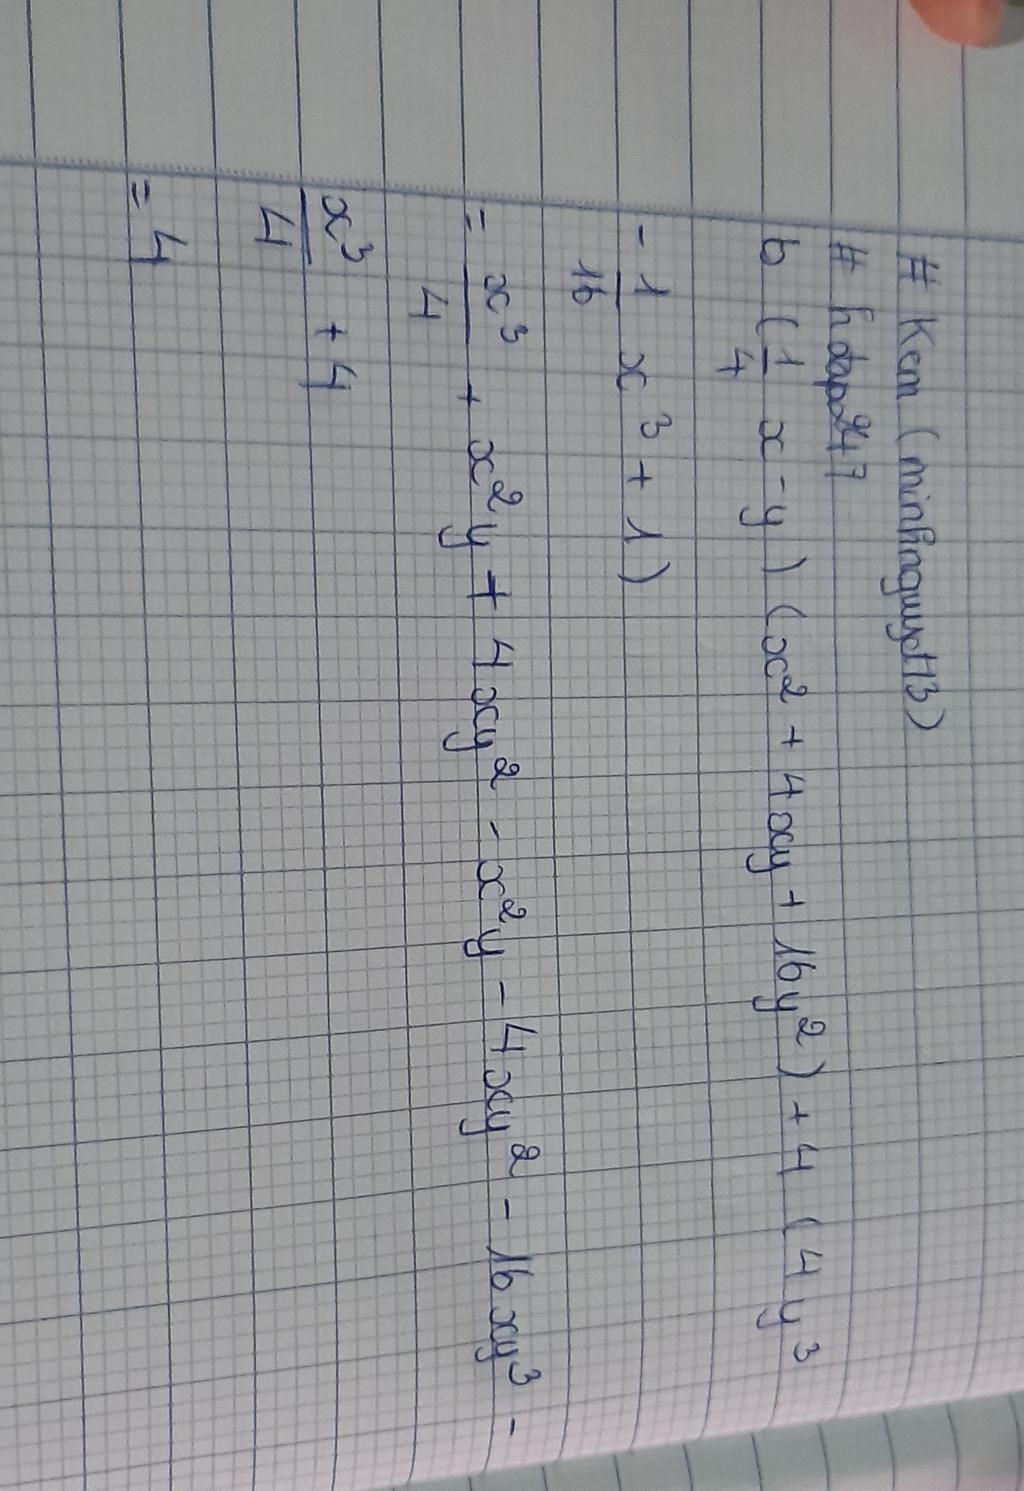 # Kem (minhnguyet13)
# hdap247
b (1/4 x - y) (x² + 4xy + 16y²) + 4 (4y³
- 1/16 x³ + 1)
= x³/4 + x²y + 4xy² - x²y - 4xy² - 16xy³ -
x³/4 + 4
= 4